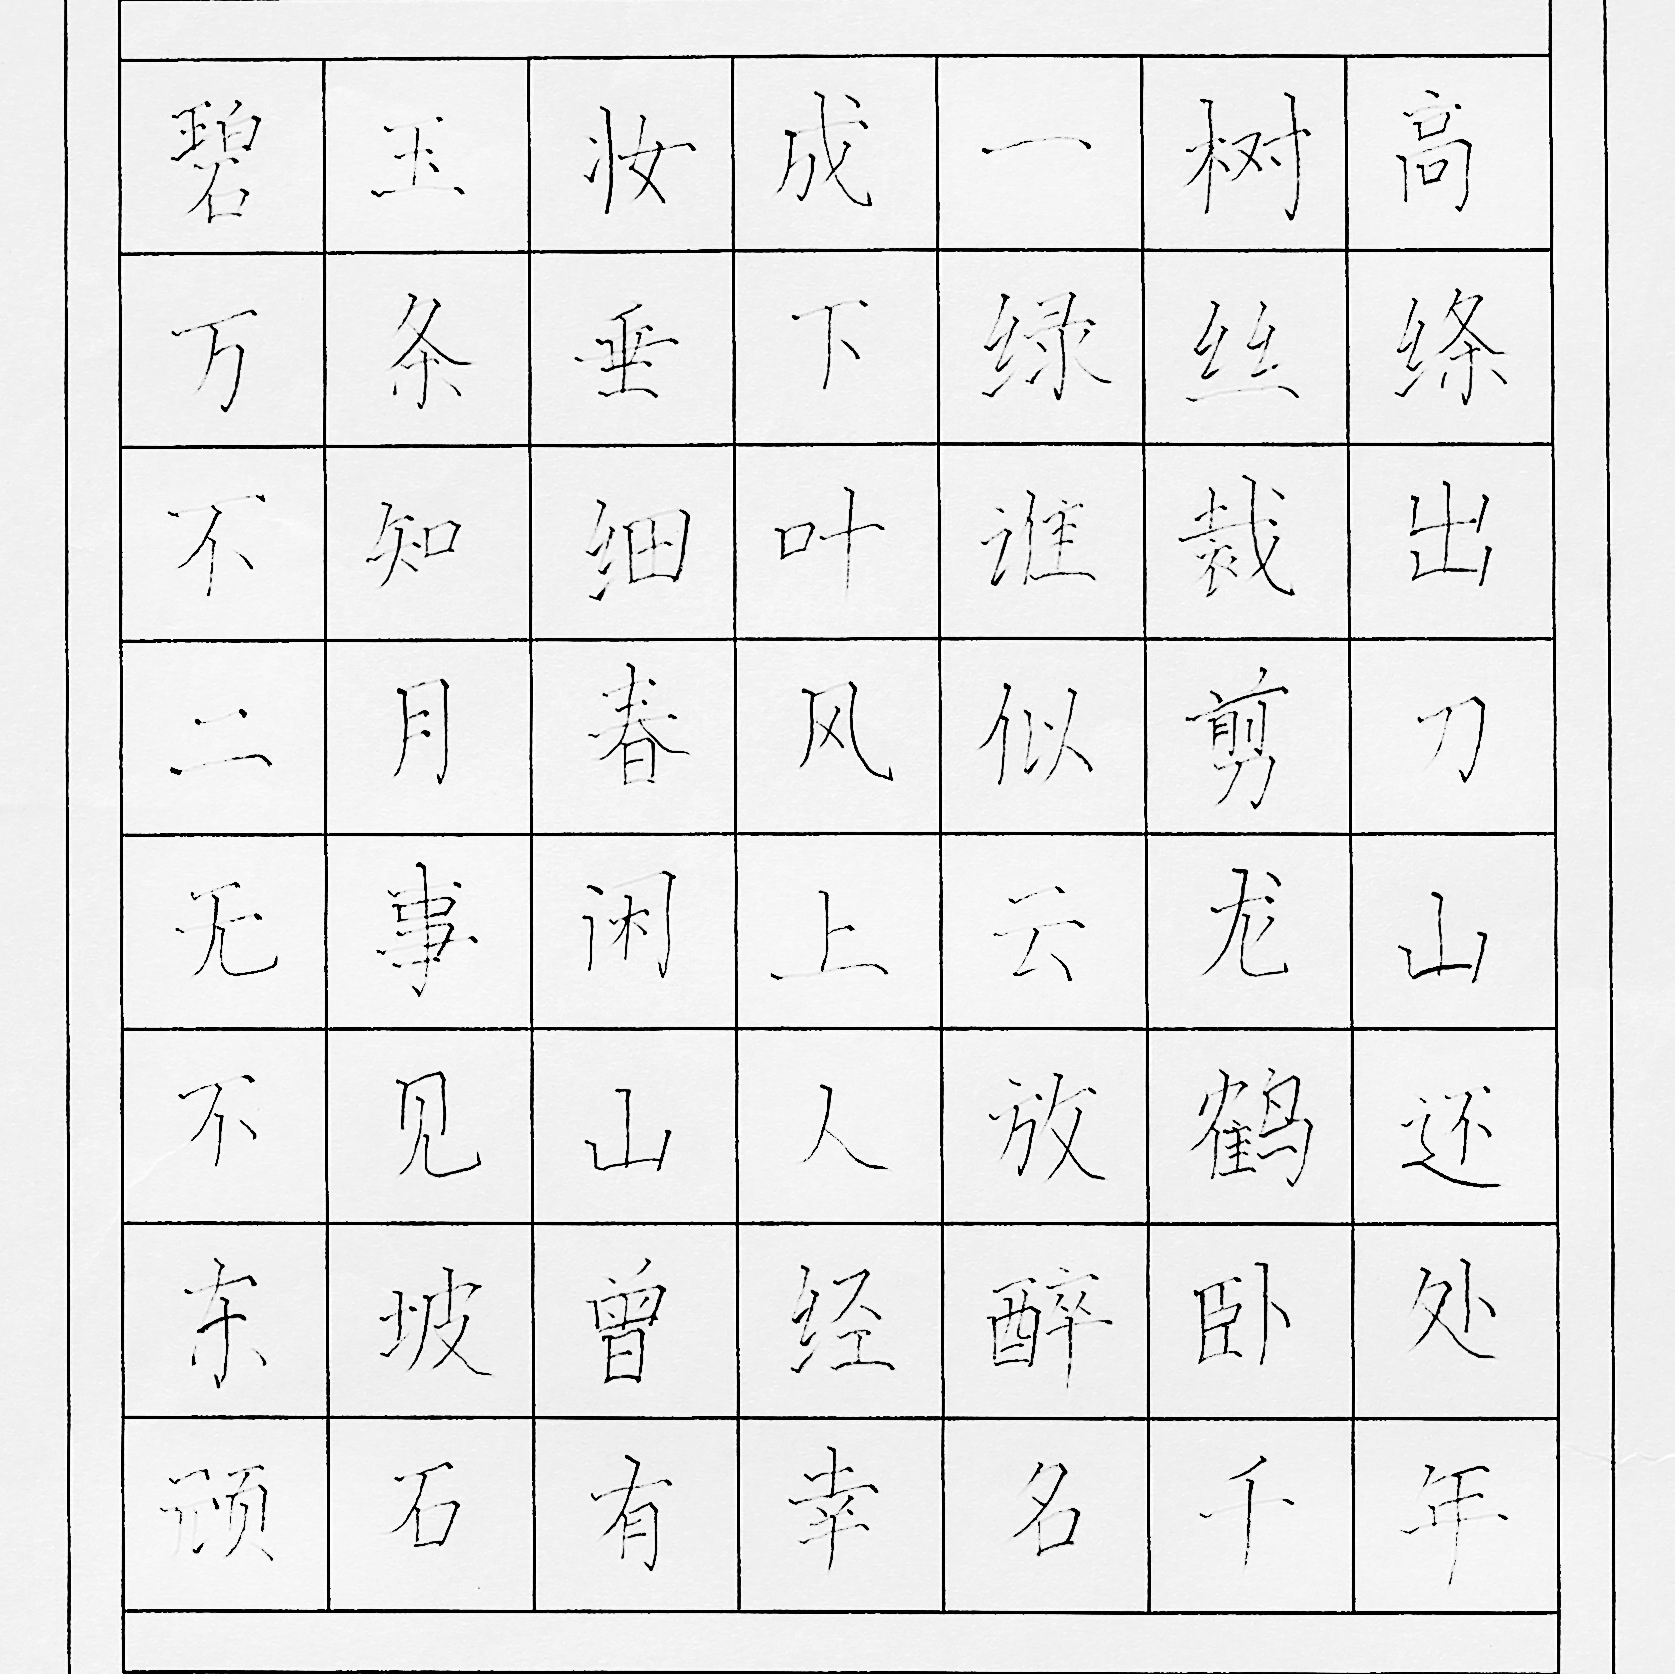 碧玉妆成一树高
万条垂下绿丝绦
不知细叶谁裁出
二月春风似剪刀
无事闲上云龙山
不见山人放鹤还
东坡曾经醉卧处
顽石有幸名千年